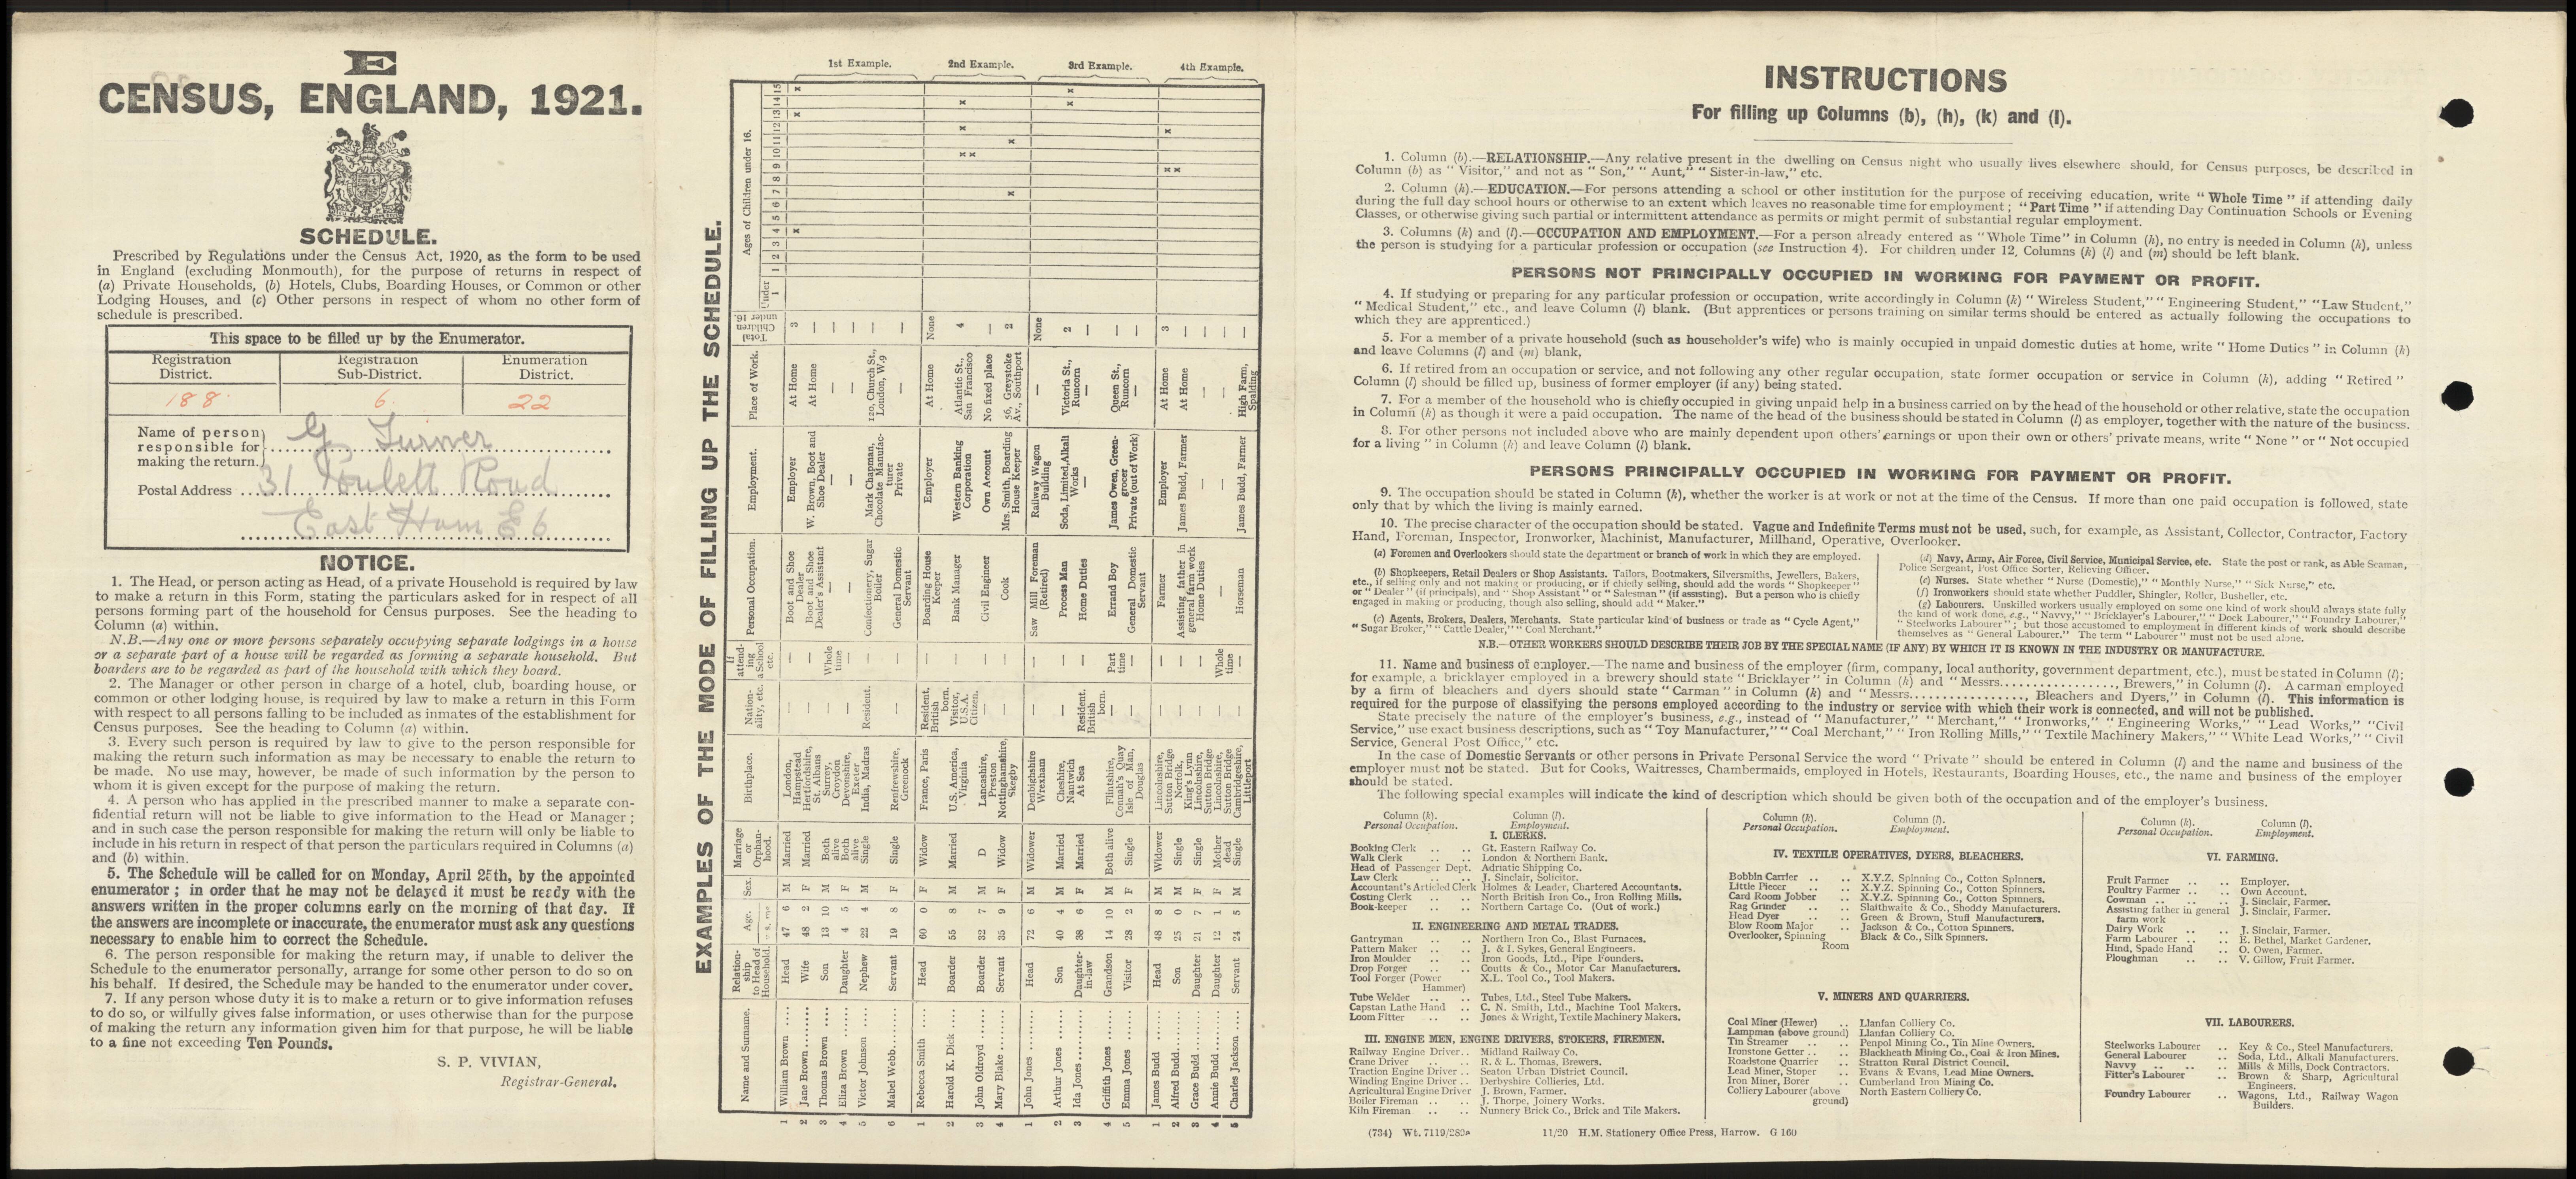 E
CENSUS, ENGLAND, 1921.
SCHEDULE.
Prescribed by Regulations under the Census Act, 1920, as the form to be used
in England (excluding Monmouth), for the purpose of returns in respect of
(a) Private Households, (b) Hotels, Clubs, Boarding Houses, or Common or other
Lodging Houses, and (c) Other persons in respect of whom no other form of
schedule is prescribed.
This space to be filled up by the Enumerator.
Registration District. Registration Sub-District. Enumeration District.
188 6 22
Name of person responsible for making the return. G Turner
Postal Address 31 Poulett Road
East Ham E6
NOTICE.
1. The Head, or person acting as Head, of a private Household is required by law
to make a return in this Form, stating the particulars asked for in respect of all
persons forming part of the household for Census purposes. See the heading to
Column (a) within.
N.B.—Any one or more persons separately occupying separate lodgings in a house
or a separate part of a house will be regarded as forming a separate household. But
boarders are to be regarded as part of the household with which they board.
2. The Manager or other person in charge of a hotel, club, boarding house, or
common or other lodging house, is required by law to make a return in this Form
with respect to all persons falling to be included as inmates of the establishment for
Census purposes. See the heading to Column (a) within.
3. Every such person is required by law to give to the person responsible for
making the return such information as may be necessary to enable the return to
be made. No use may, however, be made of such information by the person to
whom it is given except for the purpose of making the return.
4. A person who has applied in the prescribed manner to make a separate con-
fidential return will not be liable to give information to the Head or Manager ;
and in such case the person responsible for making the return will only be liable to
include in his return in respect of that person the particulars required in Columns (a)
and (b) within.
5. The Schedule will be called for on Monday, April 25th, by the appointed
enumerator ; in order that he may not be delayed it must be ready with the
answers written in the proper columns early on the morning of that day. If
the answers are incomplete or inaccurate, the enumerator must ask any questions
necessary to enable him to correct the Schedule.
6. The person responsible for making the return may, if unable to deliver the
Schedule to the enumerator personally, arrange for some other person to do so on
his behalf. If desired, the Schedule may be handed to the enumerator under cover.
7. If any person whose duty it is to make a return or to give information refuses
to do so, or wilfully gives false information, or uses otherwise than for the purpose
of making the return any information given him for that purpose, he will be liable
to a fine not exceeding Ten Pounds.
S. P. VIVIAN,
Registrar-General.
EXAMPLES OF THE MODE OF FILLING UP THE SCHEDULE.
Name and Surname. Relation-ship to Head of Household. Age. Sex. Marriage or Orphan-hood. Birthplace. Nation-ality, etc. If attend-ing a School etc. Personal Occupation. Employment. Place of Work. Total Children under 16. Ages of Children under 16.
Under 1 1 2 3 4 5 6 7 8 9 10 11 12 13 14 15
1st Example.
1 William Brown Head 47 6 M Married London, Hampstead — — Boot and Shoe Dealer Employer At Home 3 x x x
2 Jane Brown Wife 48 2 F Married Hertfordshire, St. Albans — — Boot and Shoe Dealer's Assistant W. Brown, Boot and Shoe Dealer At Home —
3 Thomas Brown Son 13 10 M Both alive Surrey, Croydon — Whole time — — — —
4 Eliza Brown Daughter 4 5 F Both alive Devonshire, Exeter — — — — — —
5 Victor Johnson Nephew 22 4 M Single India, Madras Resident. — Confectionery, Sugar Boiler Mark Chapman, Chocolate Manufac-turer 120, Church St., London, W.9 —
6 Mabel Webb Servant 19 8 F Single Renfrewshire, Greenock — — General Domestic Servant Private — —
2nd Example.
1 Rebecca Smith Head 60 0 F Widow France, Paris Resident, British born. — Boarding House Keeper Employer At Home None
2 Harold K. Dick Boarder 55 8 M Married U.S. America, Virginia Visitor, U.S.A. Citizen. — Bank Manager Western Banking Corporation Atlantic St., San Francisco 4 x x x x
3 John Oldroyd Boarder 32 7 M D Lancashire, Preston — — Civil Engineer Own Account No fixed place —
4 Mary Blake Servant 35 9 F Widow Nottinghamshire, Skegby — — Cook Mrs. Smith, Boarding House Keeper 56, Greystoke Av., Southport 2 x x
3rd Example.
1 John Jones Head 72 6 M Widower Denbighshire Wrexham — — Saw Mill Foreman (Retired) Railway Wagon Building — None
2 Arthur Jones Son 40 4 M Married Cheshire, Nantwich — — Process Man Soda, Limited, Alkali Works Victoria St., Runcorn 2 x x
3 Ida Jones Daughter-in-law 38 6 F Married At Sea Resident. British born. — Home Duties — — —
4 Griffith Jones Grandson 14 10 M Both alive Flintshire, Connah's Quay — Part time Errand Boy James Owen, Green-grocer Queen St., Runcorn —
5 Emma Jones Visitor 28 2 F Single Isle of Man, Douglas — — General Domestic Servant Private (out of Work) — —
4th Example.
1 James Budd Head 48 8 M Widower Lincolnshire, Sutton Bridge — — Farmer Employer At Home 3 x x x
2 Alfred Budd Son 25 0 M Single Norfolk, King's Lynn — — Assisting father in general farm work James Budd, Farmer At Home —
3 Grace Budd Daughter 21 7 F Single Lincolnshire, Sutton Bridge — — Home Duties — — —
4 Annie Budd Daughter 12 1 F Mother dead Lincolnshire, Sutton Bridge — Whole time — — — —
5 Charles Jackson Servant 24 5 M Single Cambridgeshire, Littleport — — Horseman James Budd, Farmer High Farm, Spalding —
INSTRUCTIONS
For filling up Columns (b), (h), (k) and (l).
1. Column (b).—RELATIONSHIP.—Any relative present in the dwelling on Census night who usually lives elsewhere should, for Census purposes, be described in
Column (b) as " Visitor," and not as " Son," " Aunt," " Sister-in-law," etc.
2. Column (h).—EDUCATION.—For persons attending a school or other institution for the purpose of receiving education, write " Whole Time " if attending daily
during the full day school hours or otherwise to an extent which leaves no reasonable time for employment ; " Part Time " if attending Day Continuation Schools or Evening
Classes, or otherwise giving such partial or intermittent attendance as permits or might permit of substantial regular employment.
3. Columns (k) and (l).—OCCUPATION AND EMPLOYMENT.—For a person already entered as "Whole Time" in Column (h), no entry is needed in Column (k), unless
the person is studying for a particular profession or occupation (see Instruction 4). For children under 12, Columns (k) (l) and (m) should be left blank.
PERSONS NOT PRINCIPALLY OCCUPIED IN WORKING FOR PAYMENT OR PROFIT.
4. If studying or preparing for any particular profession or occupation, write accordingly in Column (k) " Wireless Student," " Engineering Student," "Law Student,"
" Medical Student," etc., and leave Column (l) blank. (But apprentices or persons training on similar terms should be entered as actually following the occupations to
which they are apprenticed.)
5. For a member of a private household (such as householder's wife) who is mainly occupied in unpaid domestic duties at home, write " Home Duties " in Column (k)
and leave Columns (l) and (m) blank.
6. If retired from an occupation or service, and not following any other regular occupation, state former occupation or service in Column (k), adding " Retired "
Column (l) should be filled up, business of former employer (if any) being stated.
7. For a member of the household who is chiefly occupied in giving unpaid help in a business carried on by the head of the household or other relative, state the occupation
in Column (k) as though it were a paid occupation. The name of the head of the business should be stated in Column (l) as employer, together with the nature of the business.
8. For other persons not included above who are mainly dependent upon others' earnings or upon their own or others' private means, write " None " or " Not occupied
for a living " in Column (k) and leave Column (l) blank.
PERSONS PRINCIPALLY OCCUPIED IN WORKING FOR PAYMENT OR PROFIT.
9. The occupation should be stated in Column (k), whether the worker is at work or not at the time of the Census. If more than one paid occupation is followed, state
only that by which the living is mainly earned.
10. The precise character of the occupation should be stated. Vague and Indefinite Terms must not be used, such, for example, as Assistant, Collector, Contractor, Factory
Hand, Foreman, Inspector, Ironworker, Machinist, Manufacturer, Millhand, Operative, Overlooker.
(a) Foremen and Overlookers should state the department or branch of work in which they are employed.
(b) Shopkeepers, Retail Dealers or Shop Assistants. Tailors, Bootmakers, Silversmiths, Jewellers, Bakers,
etc., if selling only and not making or producing, or if chiefly selling, should add the words " Shopkeeper "
or " Dealer " (if principals), and " Shop Assistant " or " Salesman " (if assisting). But a person who is chiefly
engaged in making or producing, though also selling, should add " Maker."
(c) Agents, Brokers, Dealers, Merchants. State particular kind of business or trade as " Cycle Agent,"
" Sugar Broker," " Cattle Dealer," " Coal Merchant."
(d) Navy, Army, Air Force, Civil Service, Municipal Service, etc. State the post or rank, as Able Seaman,
Police Sergeant, Post Office Sorter, Relieving Officer.
(e) Nurses. State whether " Nurse (Domestic)," " Monthly Nurse," " Sick Nurse," etc.
(f) Ironworkers should state whether Puddler, Shingler, Roller, Busheller, etc.
(g) Labourers. Unskilled workers usually employed on some one kind of work should always state fully
the kind of work done, e.g., " Navvy," " Bricklayer's Labourer," " Dock Labourer," " Foundry Labourer,"
" Steelworks Labourer " ; but those accustomed to employment in different kinds of work should describe
themselves as " General Labourer." The term " Labourer " must not be used alone.
N.B.—OTHER WORKERS SHOULD DESCRIBE THEIR JOB BY THE SPECIAL NAME (IF ANY) BY WHICH IT IS KNOWN IN THE INDUSTRY OR MANUFACTURE.
11. Name and business of employer.—The name and business of the employer (firm, company, local authority, government department, etc.), must be stated in Column (l);
for example, a bricklayer employed in a brewery should state " Bricklayer " in Column (k) and " Messrs................, Brewers," in Column (l). A carman employed
by a firm of bleachers and dyers should state " Carman " in Column (k) and " Messrs................, Bleachers and Dyers," in Column (l). This information is
required for the purpose of classifying the persons employed according to the industry or service with which their work is connected, and will not be published.
State precisely the nature of the employer's business, e.g., instead of " Manufacturer," " Merchant," " Ironworks," " Engineering Works," " Lead Works," "Civil
Service," use exact business descriptions, such as " Toy Manufacturer," " Coal Merchant," " Iron Rolling Mills," " Textile Machinery Makers," " White Lead Works," " Civil
Service, General Post Office," etc.
In the case of Domestic Servants or other persons in Private Personal Service the word " Private " should be entered in Column (l) and the name and business of the
employer must not be stated. But for Cooks, Waitresses, Chambermaids, employed in Hotels, Restaurants, Boarding Houses, etc., the name and business of the employer
should be stated.
The following special examples will indicate the kind of description which should be given both of the occupation and of the employer's business.
Column (k). Personal Occupation. Column (l). Employment.
I. CLERKS.
Booking Clerk .. .. Gt. Eastern Railway Co.
Walk Clerk .. .. London & Northern Bank.
Head of Passenger Dept. Adriatic Shipping Co.
Law Clerk .. .. J. Sinclair, Solicitor.
Accountant's Articled Clerk Holmes & Leader, Chartered Accountants.
Costing Clerk .. .. North British Iron Co., Iron Rolling Mills.
Book-keeper .. .. Northern Cartage Co. (Out of work.)
II. ENGINEERING AND METAL TRADES.
Gantryman .. .. Northern Iron Co., Blast Furnaces.
Pattern Maker .. .. J. & I. Sykes, General Engineers.
Iron Moulder .. .. Iron Goods, Ltd., Pipe Founders.
Drop Forger .. .. Coutts & Co., Motor Car Manufacturers.
Tool Forger (Power Hammer) X.L. Tool Co., Tool Makers.
Tube Welder .. .. Tubes, Ltd., Steel Tube Makers.
Capstan Lathe Hand .. C. N. Smith, Ltd., Machine Tool Makers.
Loom Fitter .. .. Jones & Wright, Textile Machinery Makers.
III. ENGINE MEN, ENGINE DRIVERS, STOKERS, FIREMEN.
Railway Engine Driver .. Midland Railway Co.
Crane Driver .. .. R. & L. Thomas, Brewers.
Traction Engine Driver .. Seaton Urban District Council.
Winding Engine Driver .. Derbyshire Collieries, Ltd.
Agricultural Engine Driver J. Brown, Farmer.
Boiler Fireman .. .. J. Thorpe, Joinery Works.
Kiln Fireman .. .. Nunnery Brick Co., Brick and Tile Makers.
Column (k). Personal Occupation. Column (l). Employment.
IV. TEXTILE OPERATIVES, DYERS, BLEACHERS.
Bobbin Carrier .. .. X.Y.Z. Spinning Co., Cotton Spinners.
Little Piecer .. .. X.Y.Z. Spinning Co., Cotton Spinners.
Card Room Jobber .. X.Y.Z. Spinning Co., Cotton Spinners.
Rag Grinder .. .. Slaithwaite & Co., Shoddy Manufacturers.
Head Dyer .. .. Green & Brown, Stuff Manufacturers.
Blow Room Major .. Jackson & Co., Cotton Spinners.
Overlooker, Spinning Room Black & Co., Silk Spinners.
V. MINERS AND QUARRIERS.
Coal Miner (Hewer) .. Llanfan Colliery Co.
Lampman (above ground) Llanfan Colliery Co.
Tin Streamer .. .. Penpol Mining Co., Tin Mine Owners.
Ironstone Getter .. .. Blackheath Mining Co., Coal & Iron Mines.
Roadstone Quarrier .. Stratton Rural District Council.
Lead Miner, Stoper .. Evans & Evans, Lead Mine Owners.
Iron Miner, Borer .. Cumberland Iron Mining Co.
Colliery Labourer (above ground) North Eastern Colliery Co.
Column (k). Personal Occupation. Column (l). Employment.
VI. FARMING.
Fruit Farmer .. .. Employer.
Poultry Farmer .. .. Own Account.
Cowman .. .. .. J. Sinclair, Farmer.
Assisting father in general farm work J. Sinclair, Farmer.
Dairy Work .. .. J. Sinclair, Farmer.
Farm Labourer .. .. E. Bethel, Market Gardener.
Hind, Spade Hand .. O. Owen, Farmer.
Ploughman .. .. V. Gillow, Fruit Farmer.
VII. LABOURERS.
Steelworks Labourer .. Key & Co., Steel Manufacturers.
General Labourer .. Soda, Ltd., Alkali Manufacturers.
Navvy .. .. .. Mills & Mills, Dock Contractors.
Fitter's Labourer .. Brown & Sharp, Agricultural Engineers.
Foundry Labourer .. Wagons, Ltd., Railway Wagon Builders.
(734) Wt. 7119/289 11/20 H.M. Stationery Office Press, Harrow. G 160